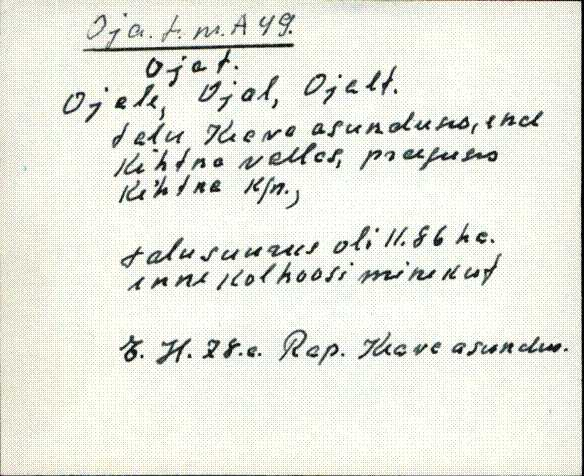 Oja. t. m. A 49.
Ojat.
Ojale, Ojal, Ojalt.
talu Keava asunduses, end
Kehtna vallas, praeguses
Kehtna k/n.,
talu suurus oli 11.86 ha.
enne kolhoosi minekut
E. H. 78. a. Rap. Keava asundus.